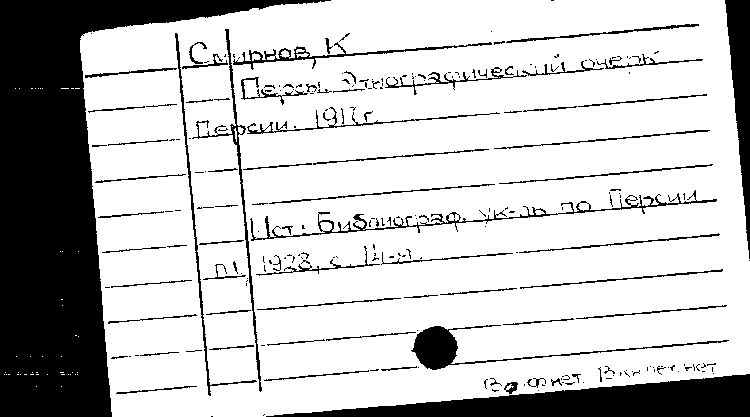 Смирнов, К
Персы. Этнографический очерк
Персии. 1917г.
Ист: Библиограф. ук-ль по Персии
1928, с. 14-я.
нет. нет